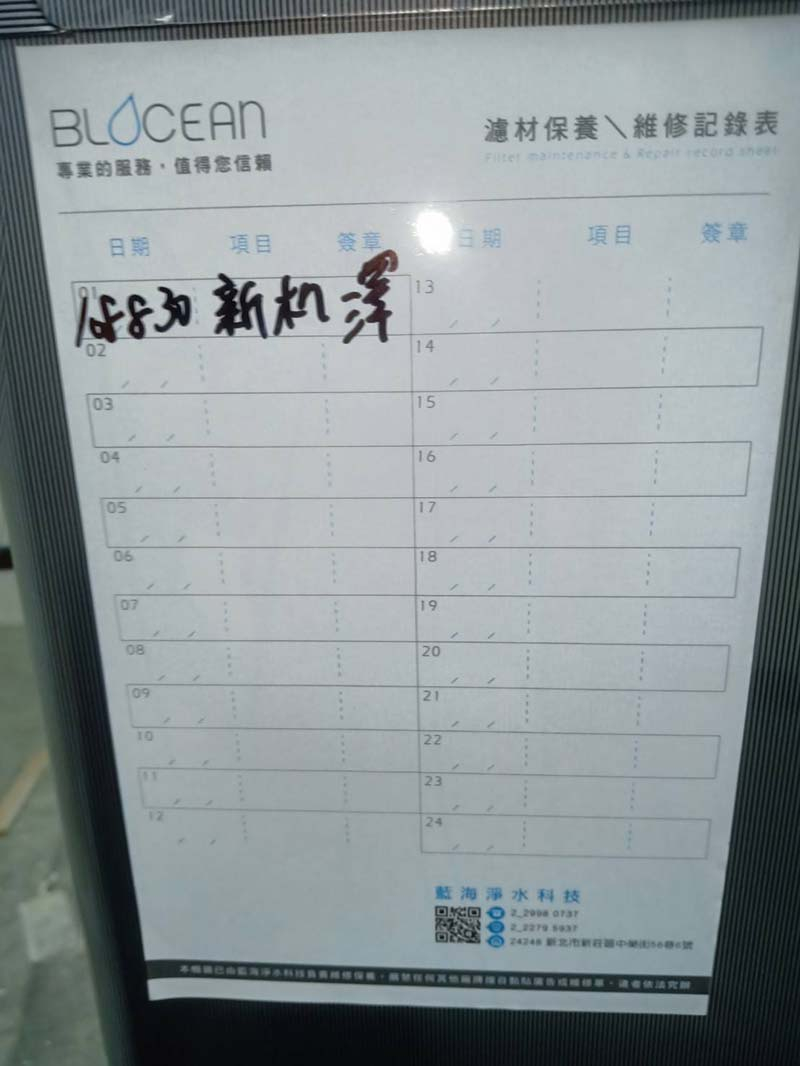 BLOCEAN
專業的服務,值得您信賴
濾材保養\維修記錄表
Filter maintenance & Repair record sheet
日期 項目 簽章 日期 項目 簽章
01 108 8 30 新机 澤 13
02 / / 14 / /
03 / / 15 / /
04 / / 16 / /
05 / / 17 / /
06 / / 18 / /
07 / / 19 / /
08 / / 20 / /
09 / / 21 / /
10 / / 22 / /
11 / / 23 / /
12 / / 24 / /
藍海淨水科技
2_2998 0737
2_2279 5937
24248 新北市新莊區中榮街56巷6號
本機器已由藍海淨水科技負責維修保養,嚴禁任何其他廠牌擅自黏貼廣告或維修單,違者依法究辦